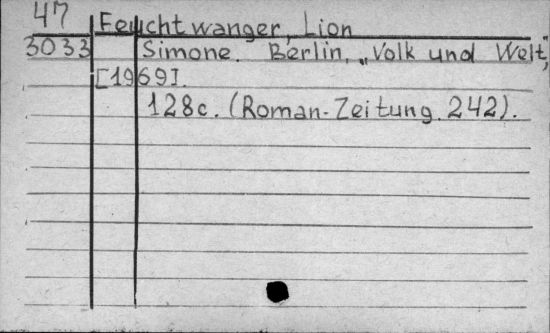 47 Feuchtwanger, Lion
3033 Simone. Berlin, „Volk und Welt",
[1969].
128c. (Roman-Zeitung. 242).